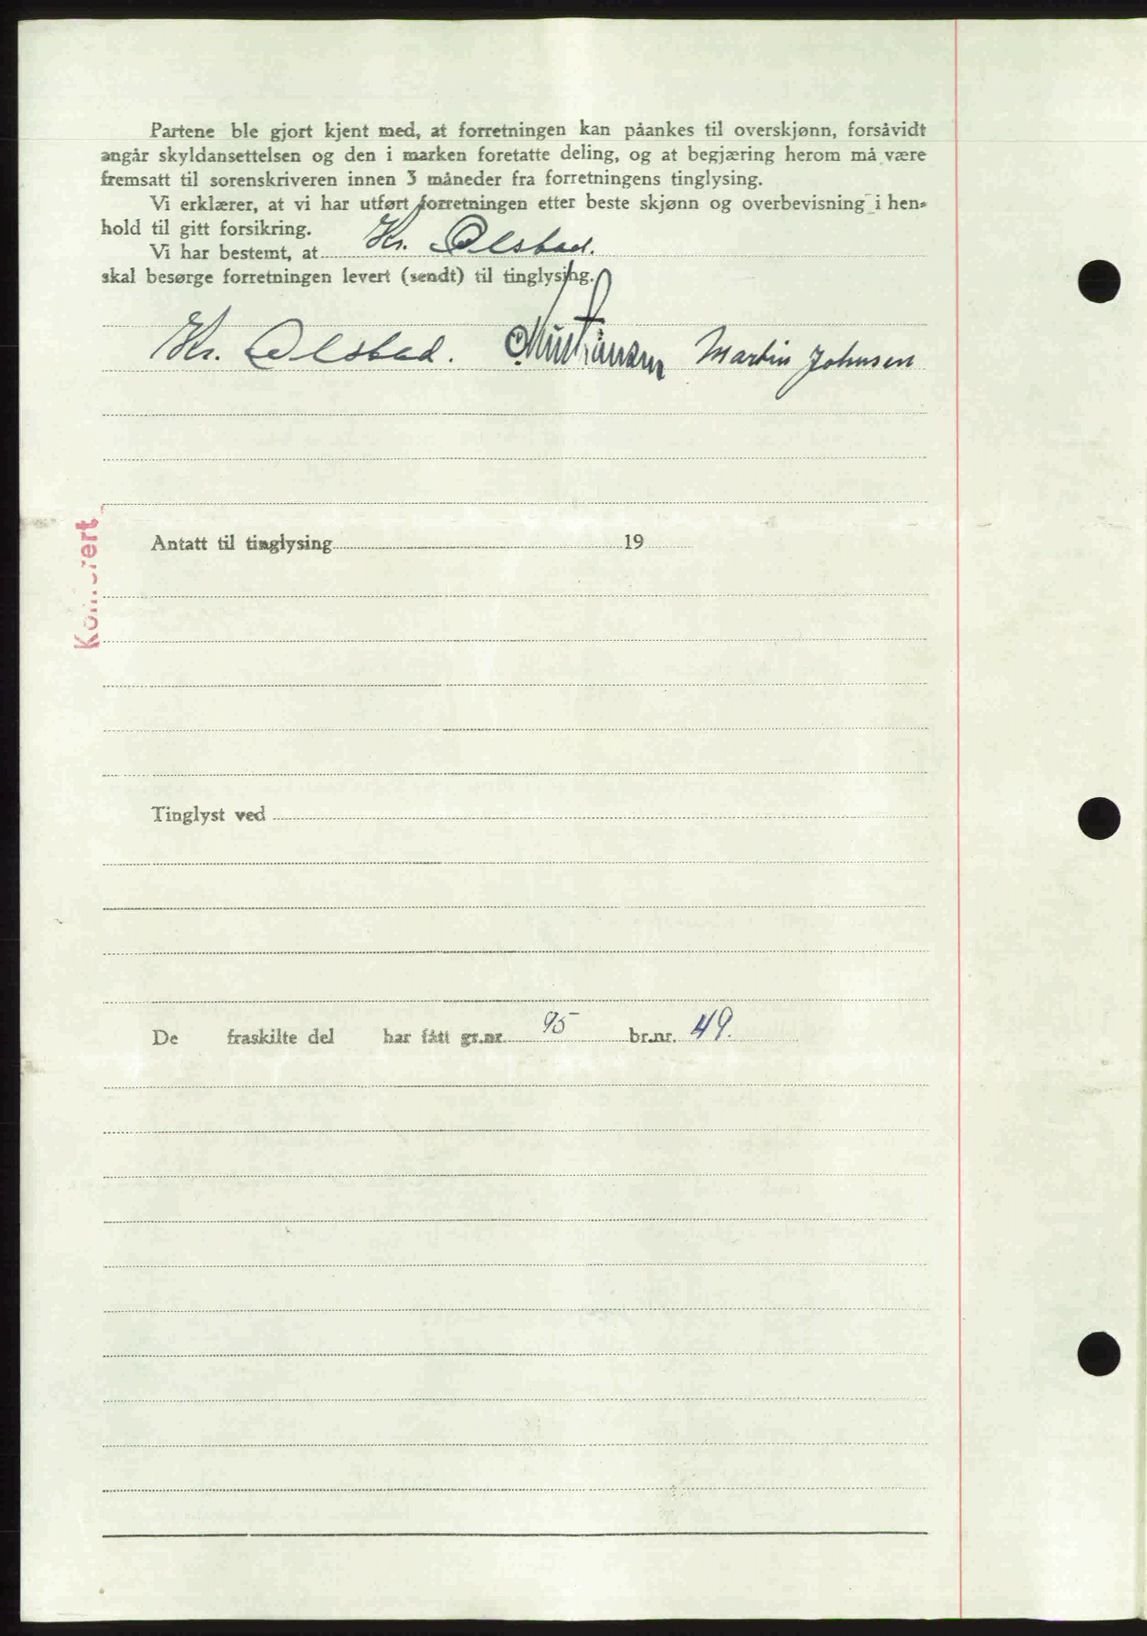 Partene ble gjort kjent med, at forretningen kan påankes til overskjønn, forsåvidt
angår skyldansettelsen og den i marken foretatte deling, og at begjæring herom må være
fremsatt til sorenskriveren innen 3 måneder fra forretningens tinglysing.
Vi erklærer, at vi har utført forretningen etter beste skjønn og overbevisning i hen-
hold til gitt forsikring.
Vi har bestemt, at Kr. Olstad.
skal besørge forretningen levert (sendt) til tinglysing.
Kr. Olstad. Kristiansen Martin Johnsen
Antatt til tinglysing 19
Tinglyst ved
De fraskilte del har fått gr.nr. 95 br.nr. 49.